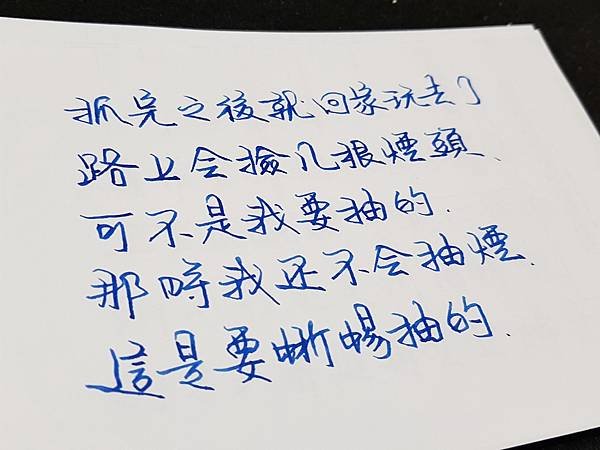 抓完之後就回家玩去了
路上会撿几根煙頭、
可不是我要抽的.
那時我还不会抽煙.
這是要蜥蜴抽的.